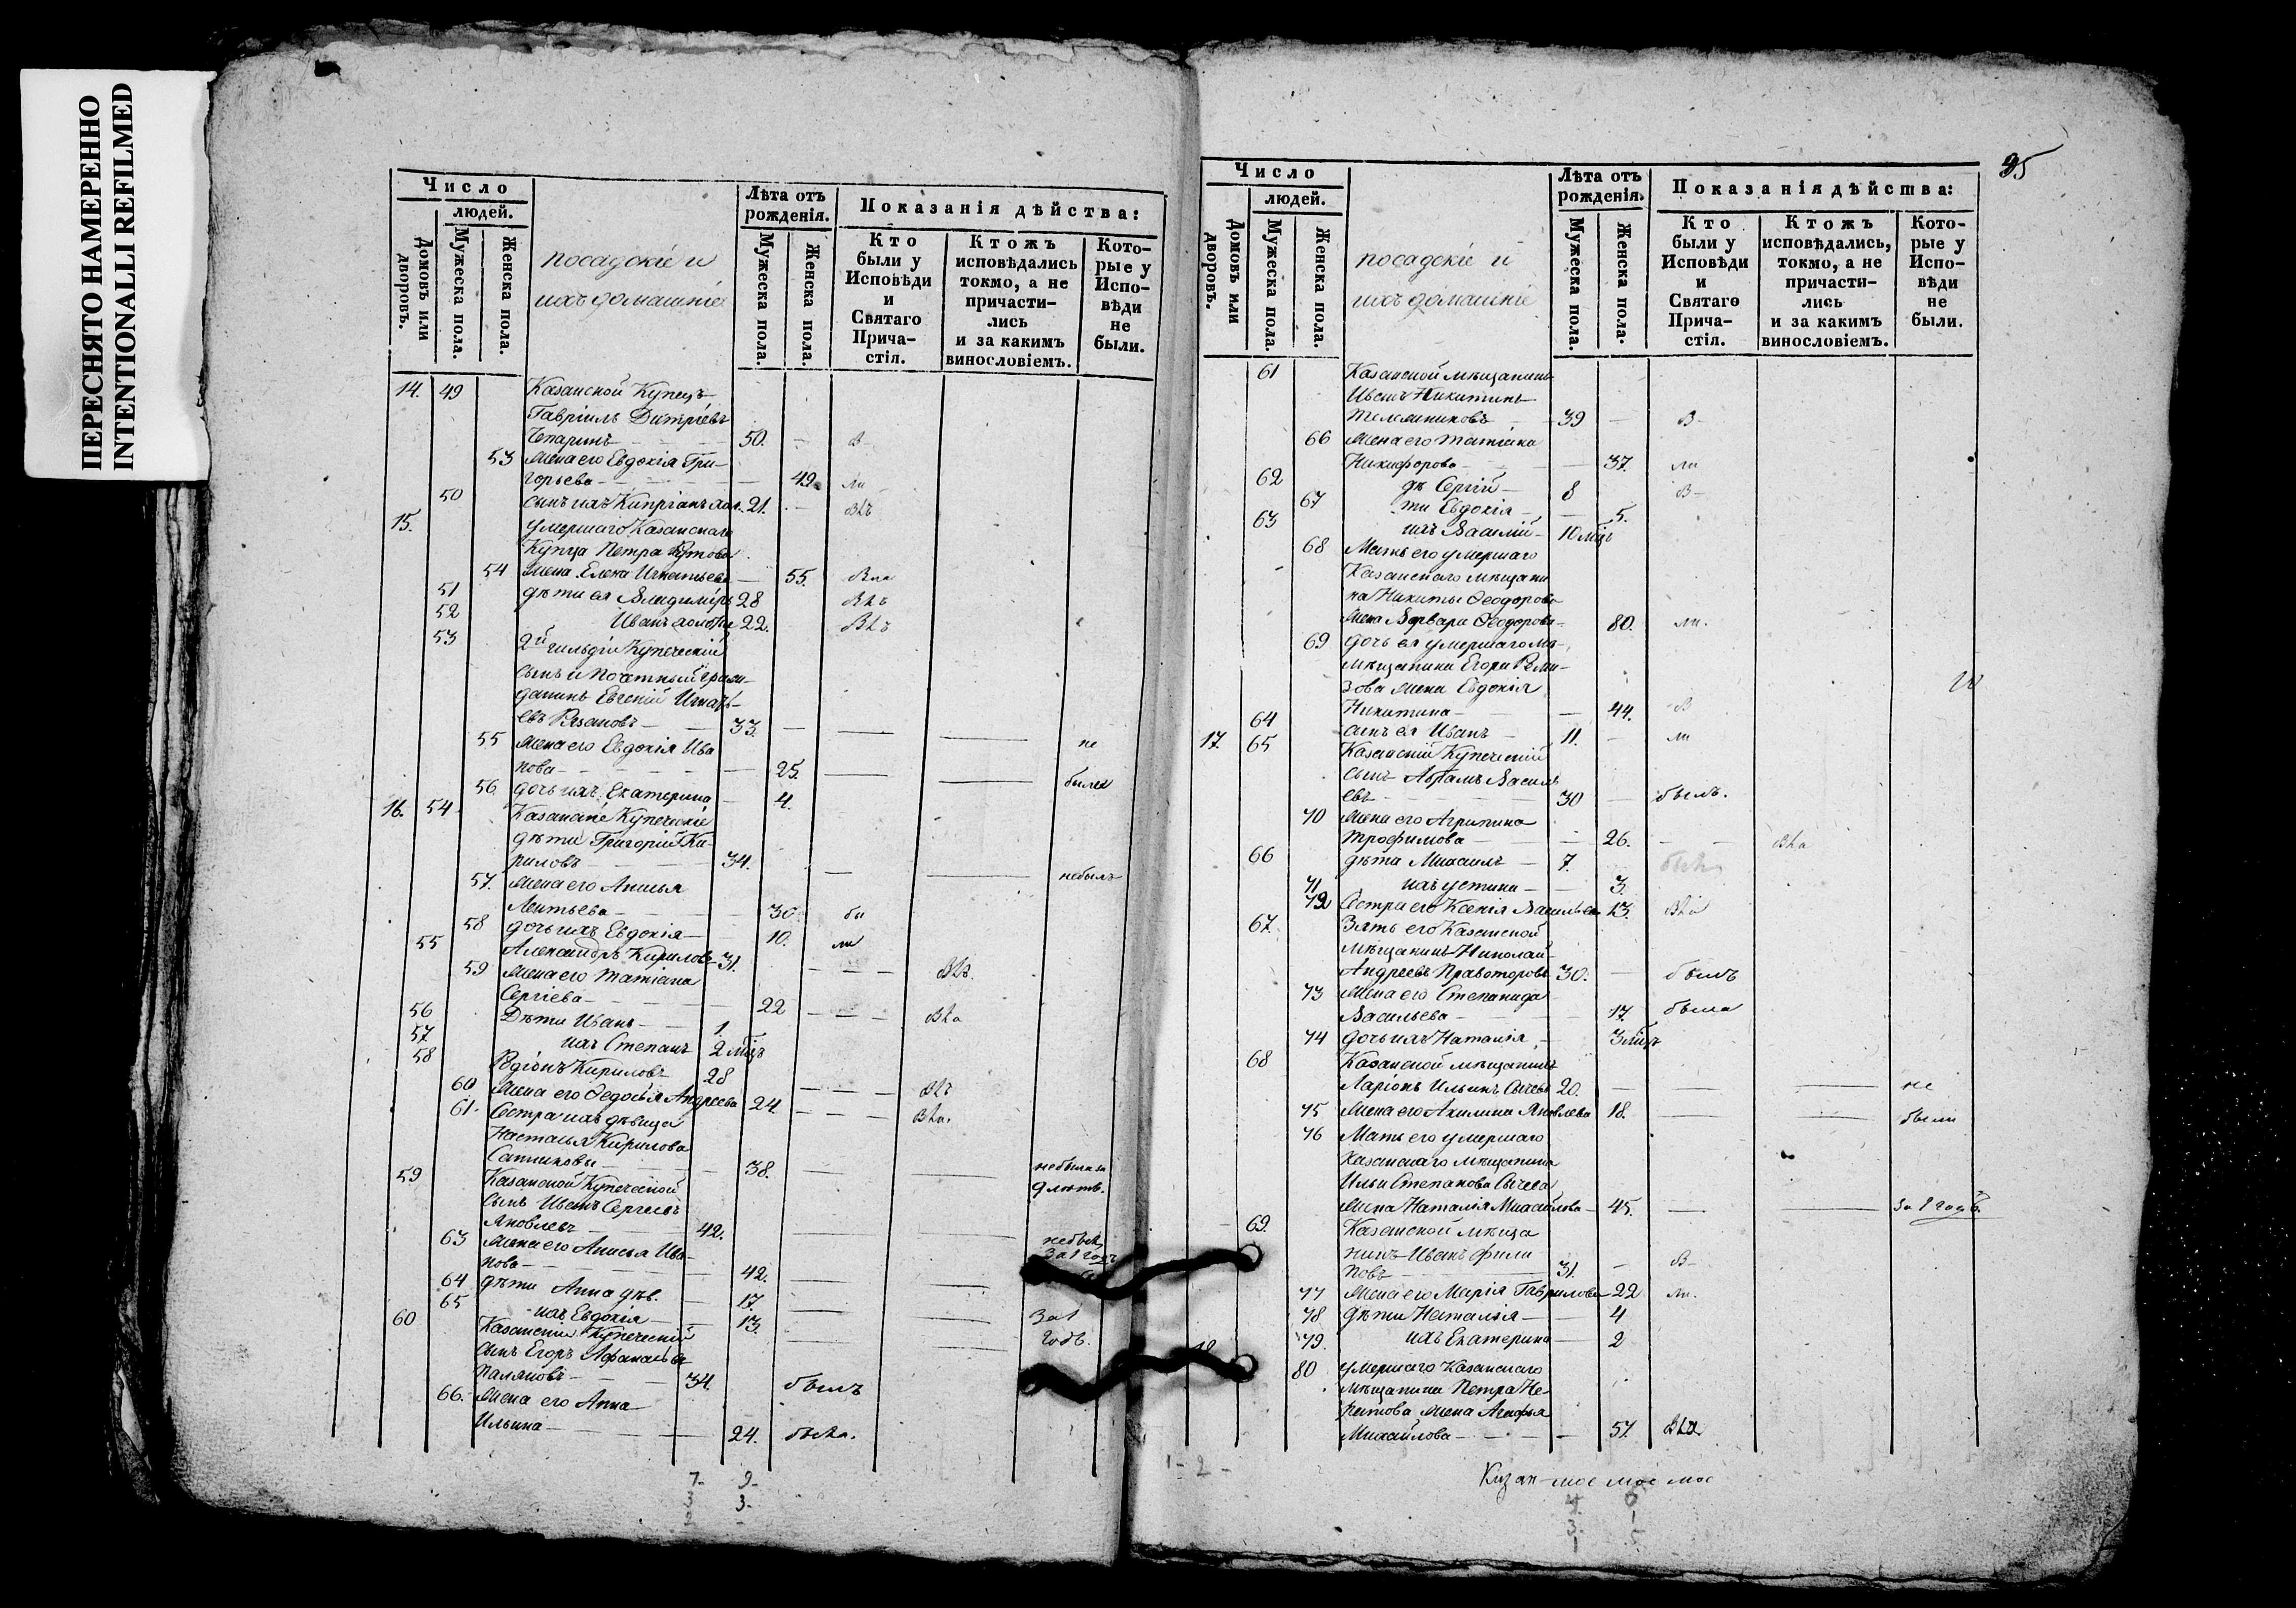 ПЕРЕСНЯТО НАМЕРЕННО
INTENTIONALLI REFILMED
Число
людей.
Домовъ или дворовъ.
Мужеска пола.
Женска пола.
посадскіе и
ихъ домашніе
Лѣта отъ рожденія.
Мужеска пола.
Женска пола.
Показанія дѣйства:
Кто были у Исповѣди и Святаго Прича-стія.
Ктожъ исповѣдались токмо, а не причасти-лись и за какимъ винословіемъ.
Кото-рые у Испо-вѣди не были.
14. 49 Казанской Купецъ
Гавріилъ Димтріевъ
50. В
53 Жена его Евдокія Гри-
горьева 49. ли
50 сынъ ихъ Кипріанъ хол. 21.
15. умершаго Казанскаго
Купца Петра
54 Жена Елена Игнатьева 55.
51 дѣти ея Владиміръ 28
52 Иванъ 22.
53 2й гильдіи Купеческій
сынъ и Почетный граж-
данинъ Евгеній Игнать-
евъ 33.
55 Жена его Евдокія Ива не
нова 25.
56. дочь ихъ Екатерина 4. были
16. 54 Казанскіе Купеческіе
дѣти Григорій Ки-
риловъ 34. небылъ
57. Жена его Анисья
Леитьева 30. бы
58 дочь ихъ Евдокія 10. ли
55 Александръ Кириловъ 31.
59 Жена его Татіана
Сергіева 22
56 Дѣти Иванъ 1.
57 ихъ Степанъ 2 мѣц
58 Родіонъ Кириловъ 28
60 Жена его Федосья Андреева 24
61. Сестра ихъ дѣвица
Настасья Кирилова
38. небыла за
59 Казанской Купеческой 9 лѣтъ.
сынъ Иванъ Сергеевъ
Яковлевъ 42.
63 Жена его Анисья Ива- за 1 годъ
нова 42.
64 дѣти Анна дѣв. 17.
65 ихъ Евдокія 13. за 1
60 Казанскій Купеческій годъ.
сынъ Егоръ Афанасьевъ
34. былъ
66. Жена его Анна
Ильина 24. была.
7- 9-
3 3-
95
Число
людей.
Домовъ или дворовъ.
Мужеска пола.
Женска пола.
посадскіе и
ихъ домашніе
Лѣта отъ рожденія.
Мужеска пола.
Женска пола.
Показанія дѣйства:
Кто были у Исповѣди и Святаго Прича-стія.
Ктожъ исповѣдались, токмо, а не причасти-лись и за какимъ винословіемъ.
Кото-рые у Испо-вѣди не были.
61 Казанской мѣщанинъ
Иванъ Никитинъ
39 В
66 Жена его Татіана
Никифорова 37. ли
62 дѣ Сергій 8 В
67 ти Евдокія 5.
63 ихъ Василій 10 мѣц
68 Мать его умершаго
Казанскаго мѣщани
на Никиты Феодорова
Жена Варвара Феодорова 80. ли.
69 дочь ея умершаго
мѣщанина Егора Реми-
зова Жена Евдокія
Никитина 44. В
64 сынъ ея Иванъ 11. ли
17. 65 Казанскій Купеческій
сынъ Абрамъ Василь
евъ 30 былъ.
70 Жена его Агрипина
Трофимова 26.
66 дѣти Михаилъ 7.
71 ихъ устина 3.
72 Сестра его Ксенія Васильева 13.
67. Зять его Казанской
мѣщанинъ Николай
Андреевъ Правоторовъ 30. былъ
73 Жена его Степанида
Васильева 17. была
74 дочь ихъ Наталія 3 мѣц
68 Казанской мѣщанинъ
Ларіонъ Ильинъ Сычевъ 20. не
75 Жена его Акилина Яковлева 18. были
76 Мать его умершаго
Казанскаго мѣщанина
Ильи Степанова Сычева
Жена Наталія Михайлова 45. за 1 годъ.
69. Казанской мѣща
нинъ Иванъ Фили
повъ 31. В
77 Жена его Марія Гаврилова 22 ли.
78 дѣти Наталія 4
79. ихъ Екатерина 2
80 умершаго Казанскаго
мѣщанина Петра Не-
Жена Агафья
Михайлова 57.
1- 2-